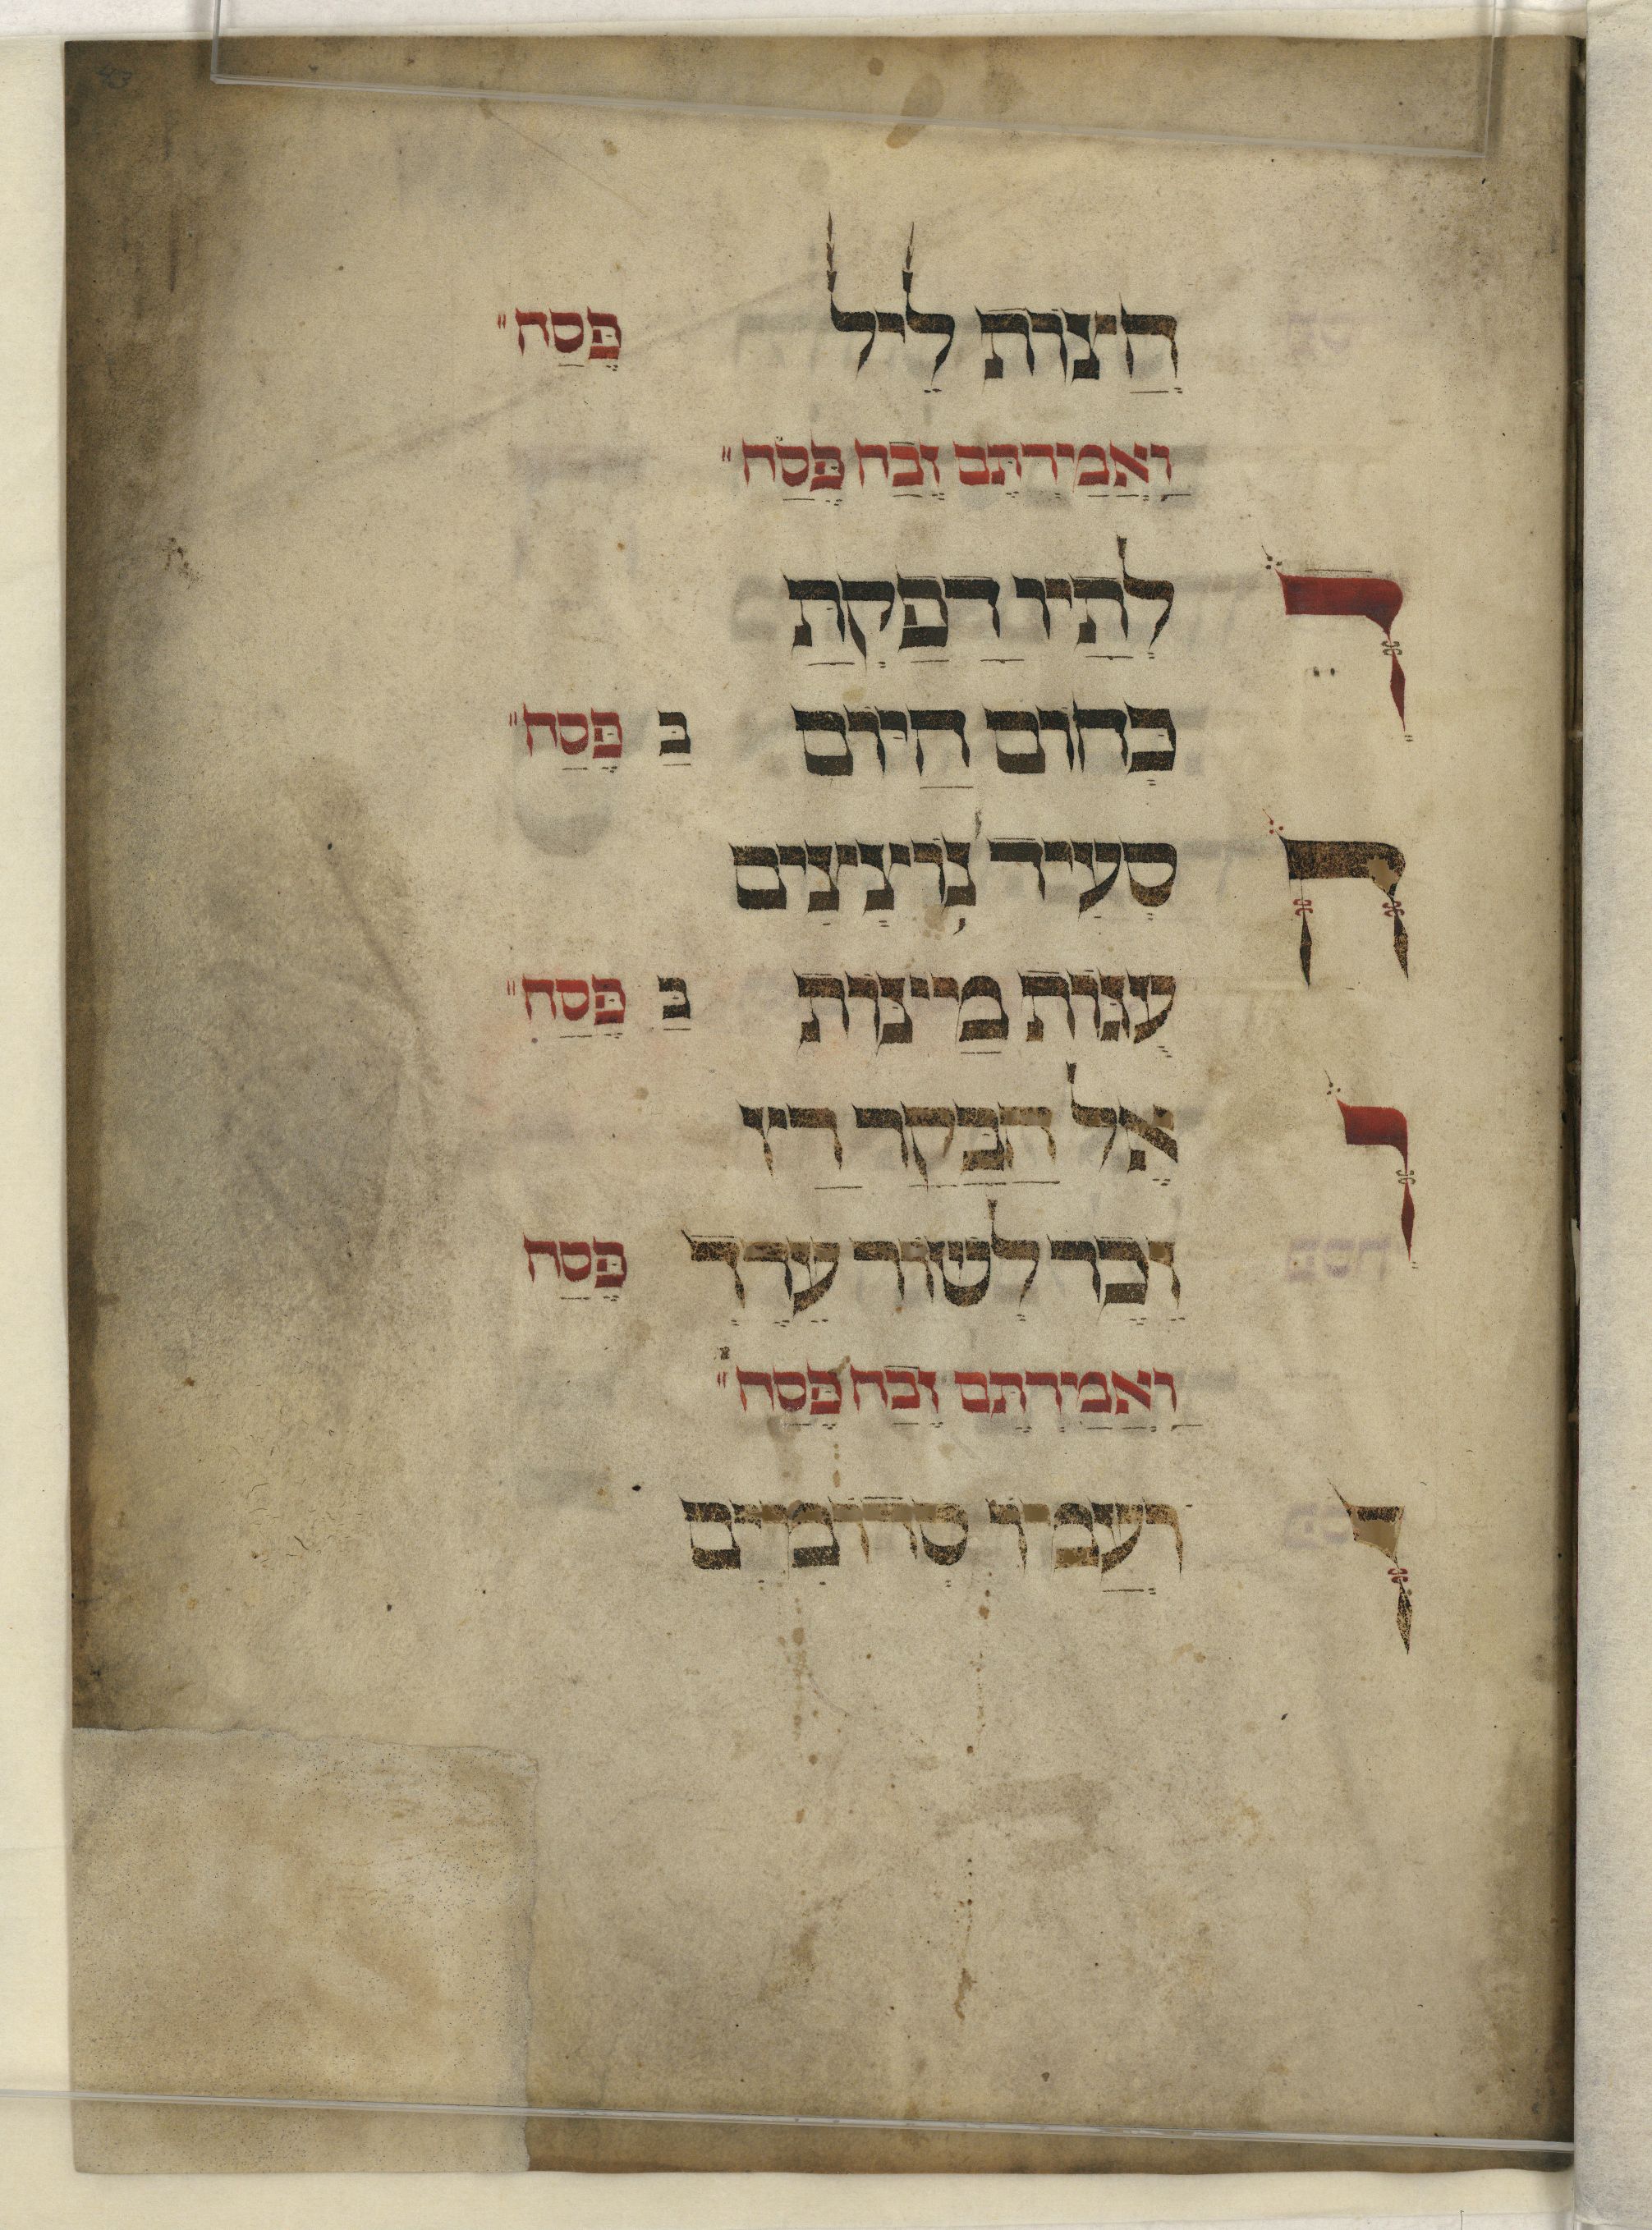 חצות ליל פסח״
ואמרתם זבח פסח״
ד לתיו דפקת
כחום היום ב פסח״
ה סעיד נוצצים
עגות מצות ב פסח״
ו אל הבקר רץ
זכר לשור ערך פסח
ואמרתם זבח פסח״
ז ועמו סדומים